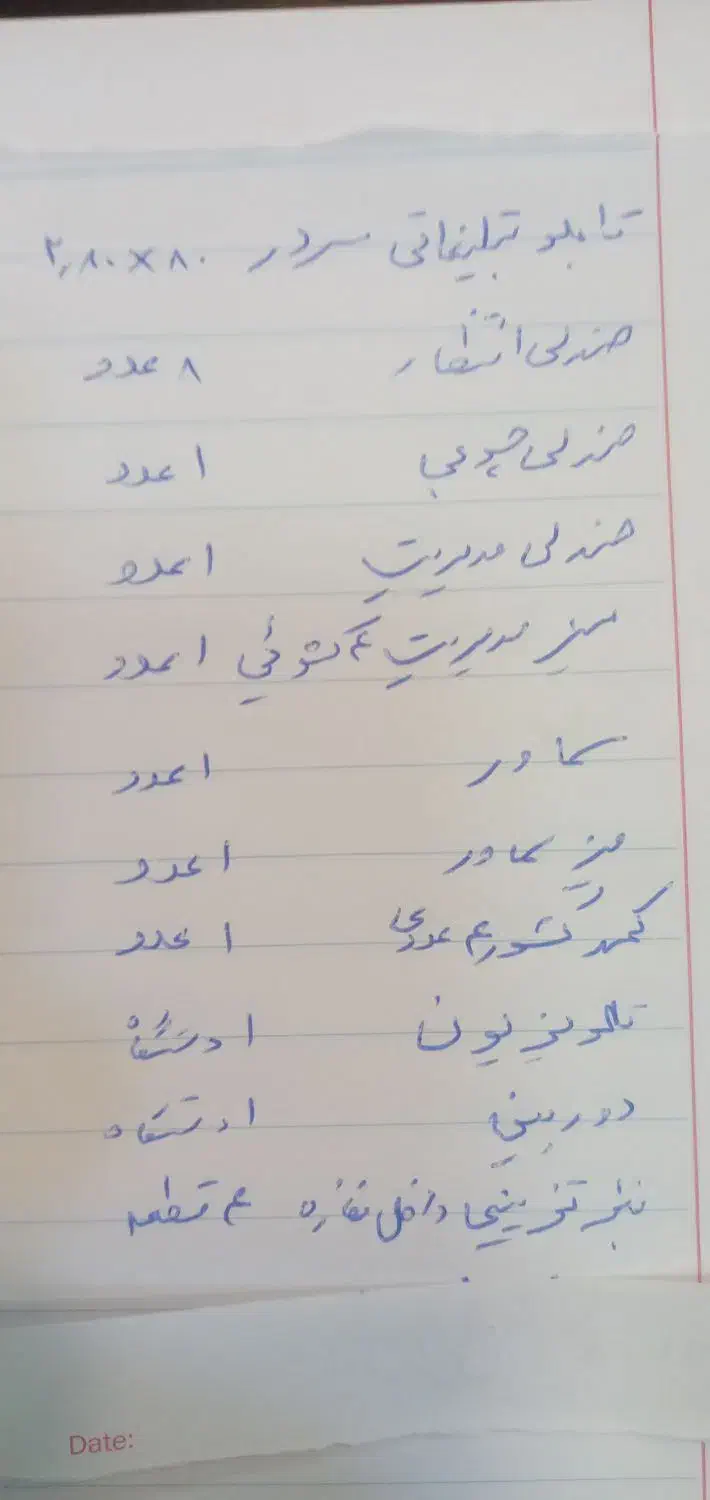 تابلو تبلیغاتی سردر ۸۰×۲,۸۰
صندلی انتظار ۸ عدد
صندلی چوبی ۱ عدد
صندلی مدیریت ۱ عدد
میز مدیریت ۴ کشوئی ۱ عدد
سماور ۱ عدد
میز سماور ۱ عدد
کمد کشو ۴ عددی ۱ عدد
تلویزیون ۱ دستگاه
دوربین ۱ دستگاه
بنر تزیینی داخل مغازه ۴ قطعه
Date: